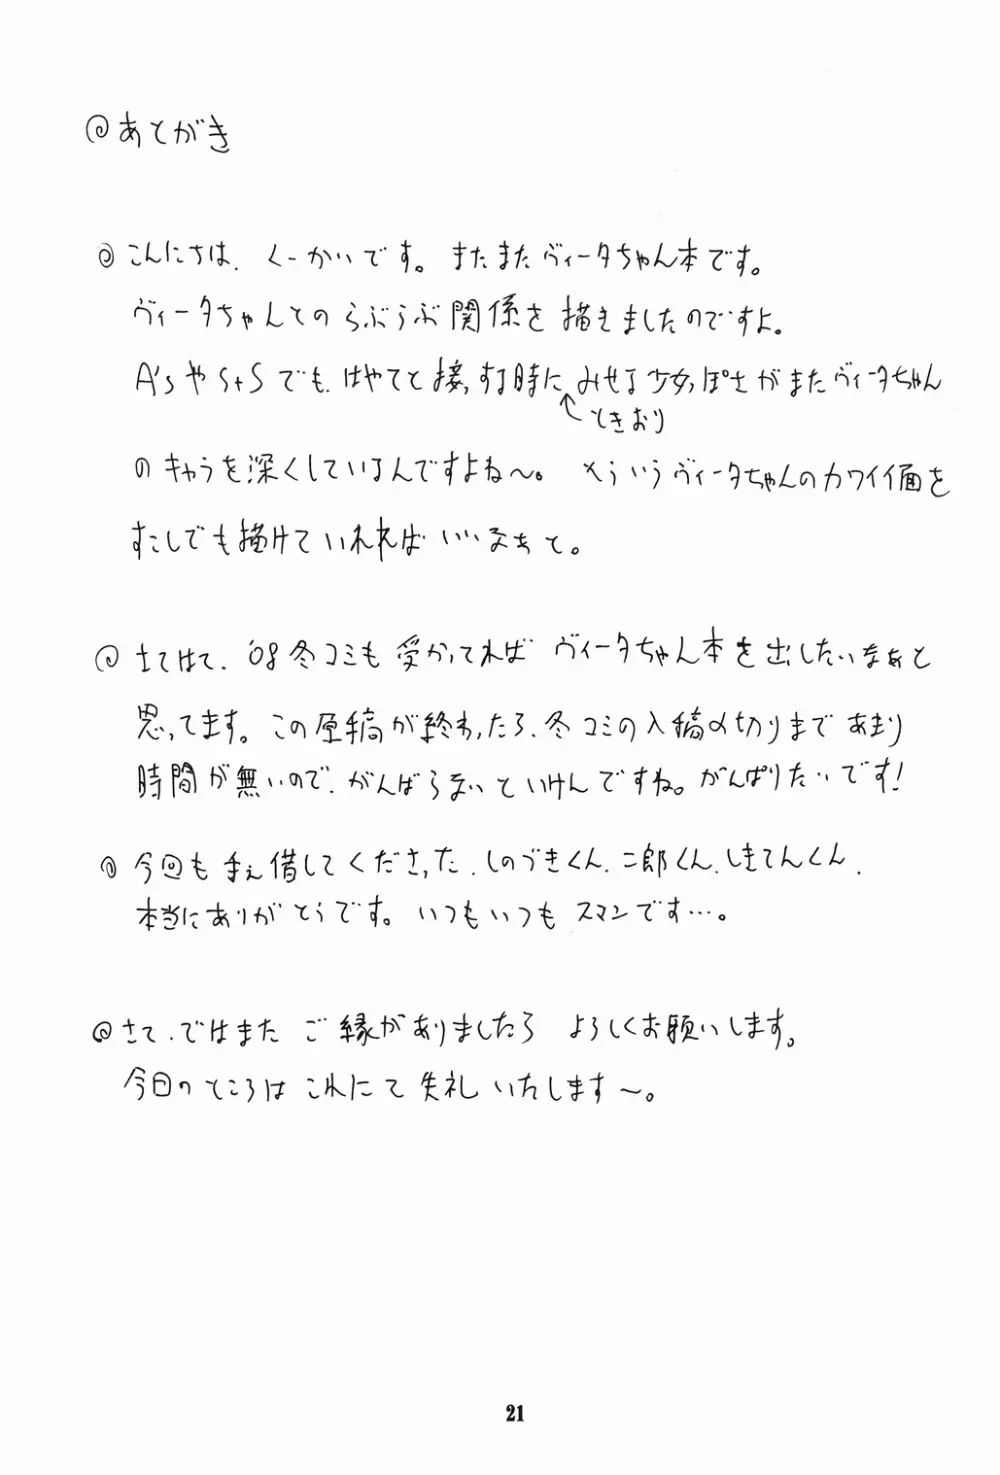 @あとがき
@こんにちは、くーかいです。またまたヴィータちゃん本です。
ヴィータちゃんとのらぶらぶ関係を描きましたのですよ。
A'sやStSでも、はやてと接っする時にみせる少女っぽさがまたヴィータちゃん
ときおり
のキャラを深くしているんですよね〜。そういうヴィータちゃんのカワイイ面を
すこしでも描けていれればいいなぁと。
@さてはて、'08冬コミも受かってればヴィータちゃん本を出したいなぁと
思ってます。この原稿が終わったら、冬コミの入稿〆切りまであまり
時間が無いので、がんばらないといけんですね。がんばりたいです!
@今回も手ぇ借してくださった、しのづきくん、二郎くん、しきてんくん、
本当にありがとうです。いつもいつもスマンです…。
@さて、ではまたご縁がありましたらよろしくお願いします。
今日のところはこれにて失礼いたします〜。
21